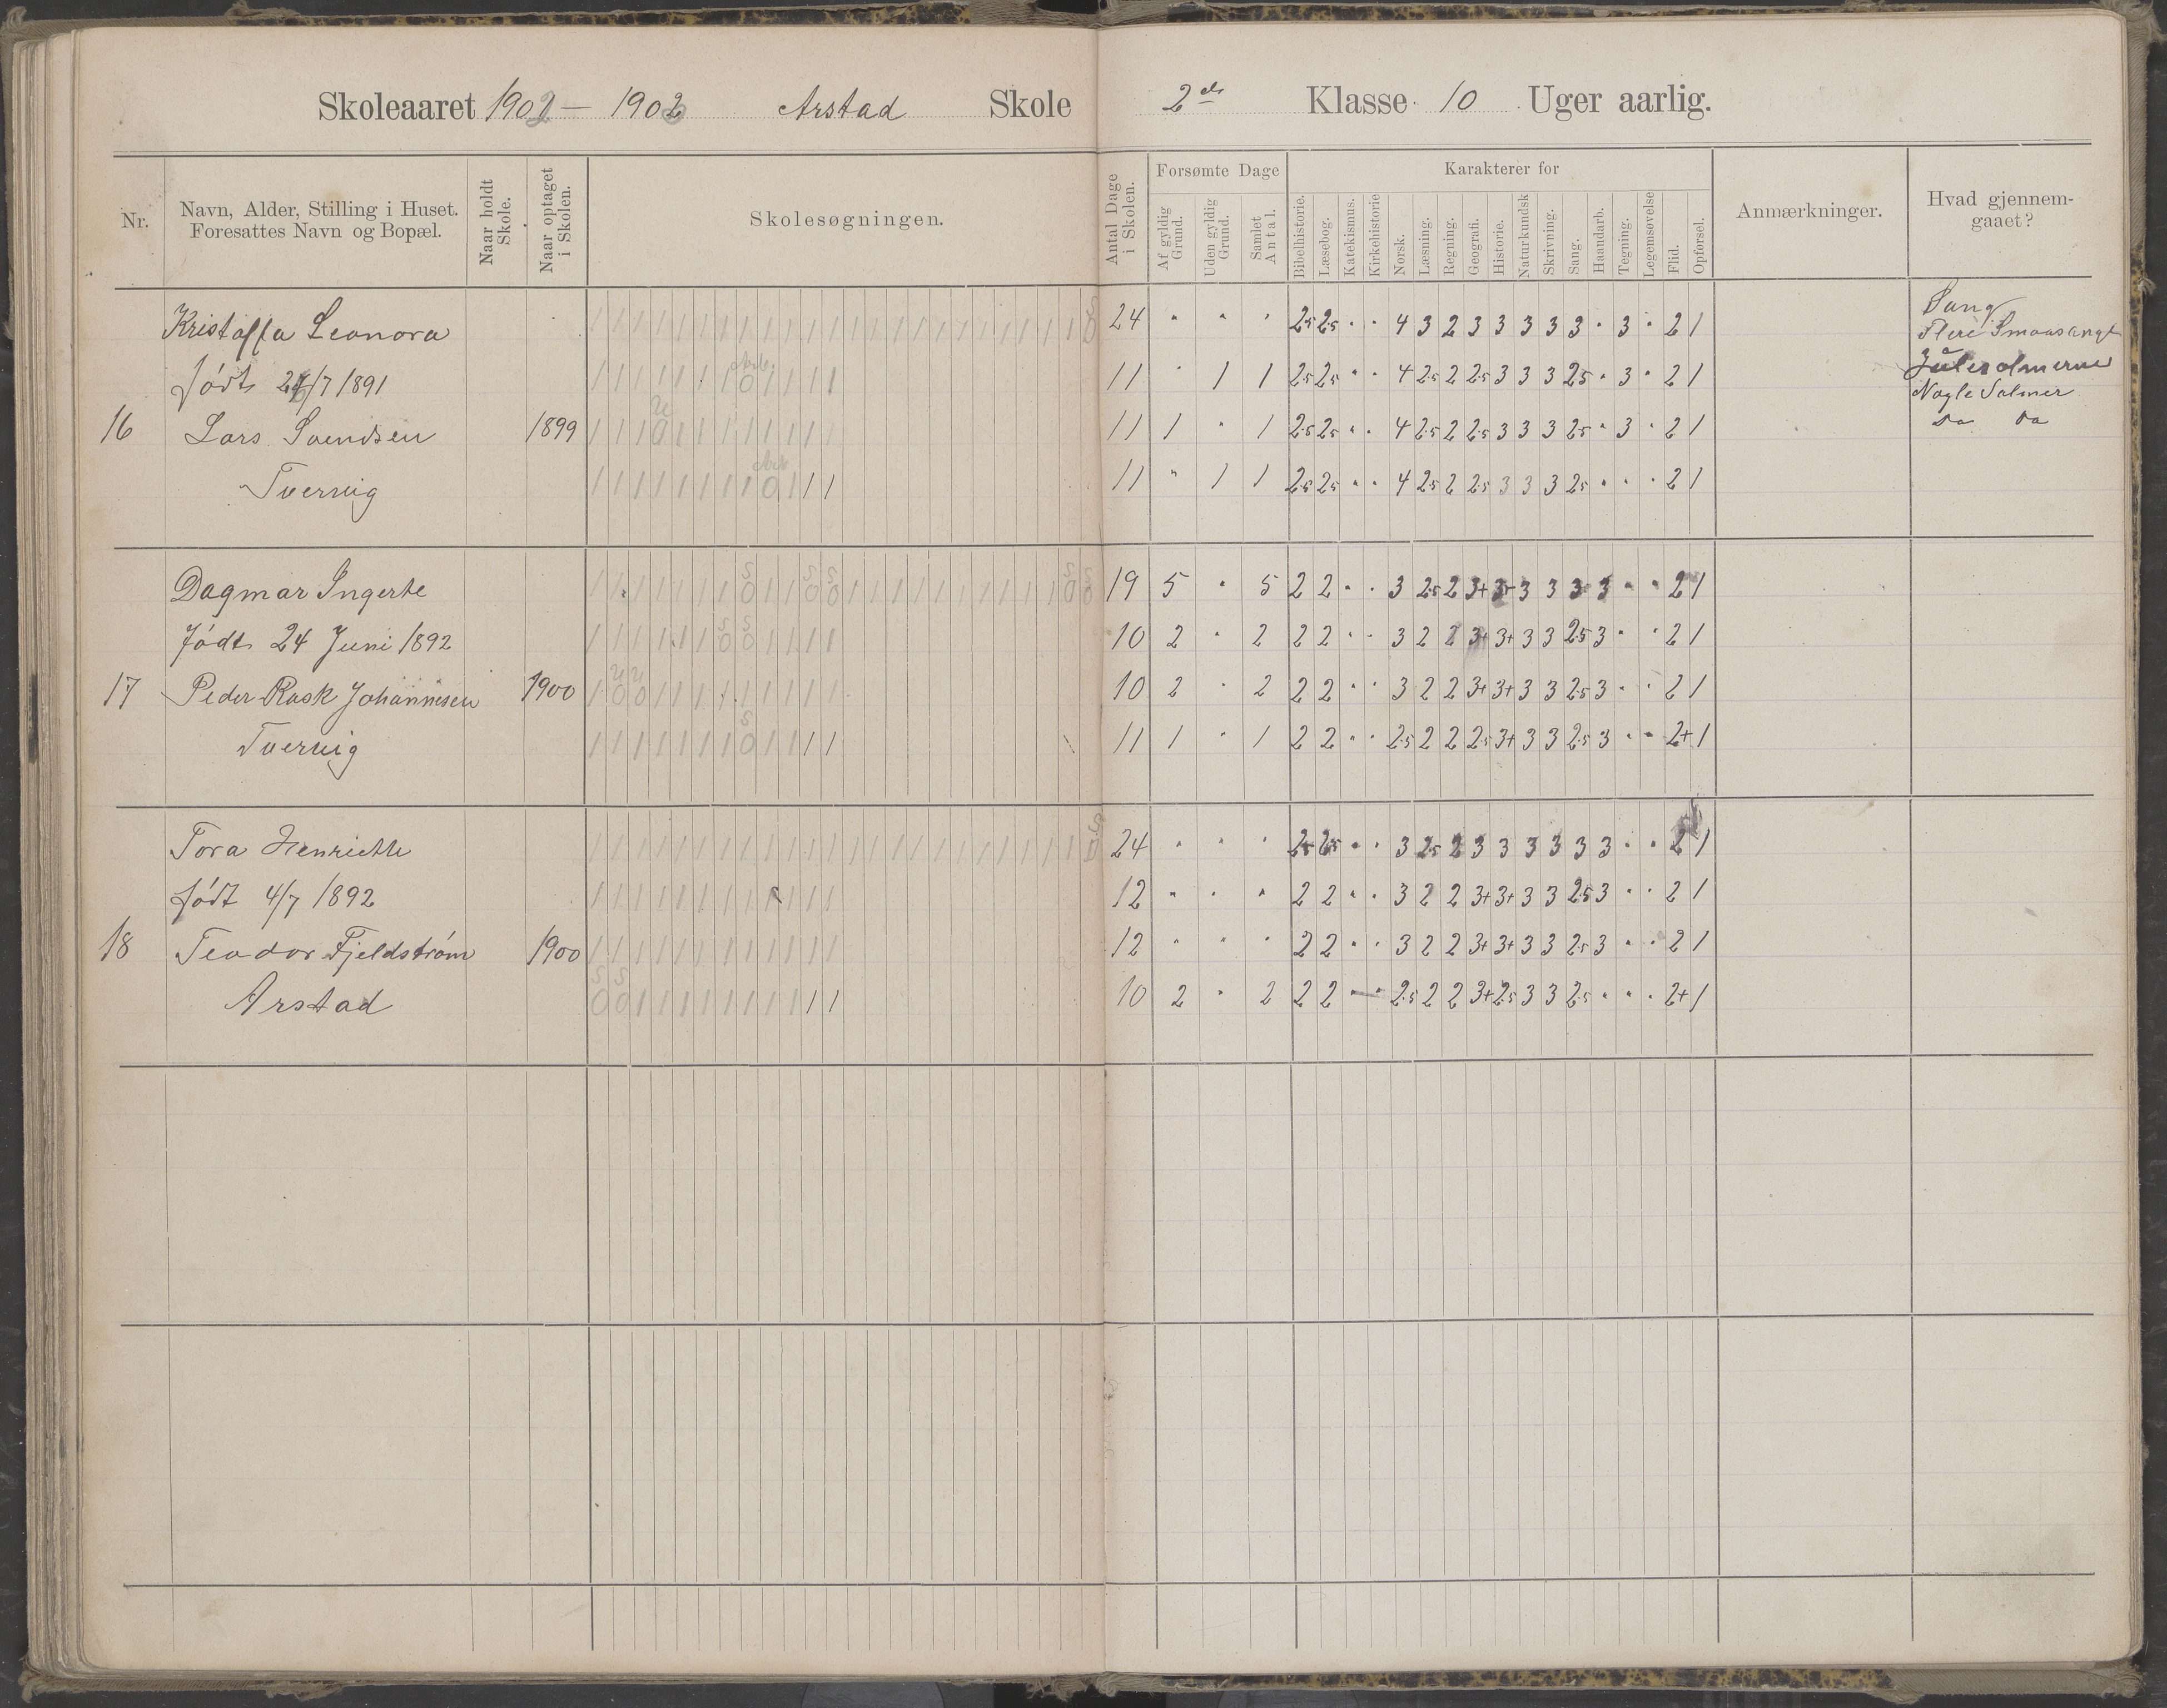 Skoleaaret 1902 — 1902 Arstad Skole 2de Klasse 10 Uger aarlig.
Nr.
Navn, Alder, Stilling i Huset.
Foresattes Navn og Bopæl.
Naar holdt Skole.
Naar optaget i Skolen.
Skolesøgningen.
Antal Dage i Skolen.
Forsømte Dage
Af gyldig Grund.
Uden gyldig Grund.
Samlet Antal.
Karakterer for
Bibelhistorie.
Læsebog.
Katekismus.
Kirkehistorie
Norsk.
Læsning.
Regning.
Geografi.
Historie.
Naturkundsk
Skrivning.
Sang.
Haandarb.
Tegning.
Legemsøvelse
Flid.
Opførsel.
Anmærkninger.
Hvad gjennem-
gaaet?
Kristoffa Leonora 24 " " " 2.5 2.5 " " 4 3 2 3 3 3 3 3 " 3 " 2 1
født 26/7 1891 11 " 1 1 2.5 2.5 " " 4 2.5 2 2.5 3 3 3 2.5 " 3 " 2 1
16 Lars Svendsen 1899 11 1 " 1 2.5 2.5 " " 4 2.5 2 2.5 3 3 3 2.5 " 3 " 2 1
Tvervig 11 " 1 1 2.5 2.5 " " 4 2.5 2 2.5 3 3 3 2.5 " " " 2 1
Sang
Flere Smaasange
Julesalmerne
Nogle Salmer
Do Do
Dagmar Ingerte 19 5 " 5 2 2 " " 3 2.5 2 3+ 3+ 3 3 3 3 " " 2 1
Født 24 Juni 1892 10 2 " 2 2 2 " " 3 2 2 3+ 3+ 3 3 2.5 3 " " 2 1
17 Peder Rask Johannesen 1900 10 2 " 2 2 2 " " 3 2 2 3+ 3+ 3 3 2.5 3 " " 2 1
Tvervig 11 1 " 1 2 2 " " 2.5 2 2 2.5 3+ 3 3 2.5 3 " " 2+ 1
Tora Henriette 24 " " " 2.5 2.5 " " 3 2.5 2 3 3 3 3 3 3 " " 2 1
født 4/7 1892 12 " " " 2 2 " " 3 2 2 3+ 3+ 3 3 2.5 3 " " 2 1
18 Teodor Fjeldstrøm 1900 12 " " " 2 2 " " 3 2 2 3+ 3+ 3 3 2.5 3 " " 2 1
Arstad 10 2 " 2 2 2 — " 2.5 2 2 3+ 2.5 3 3 2.5 " " " 2+ 1